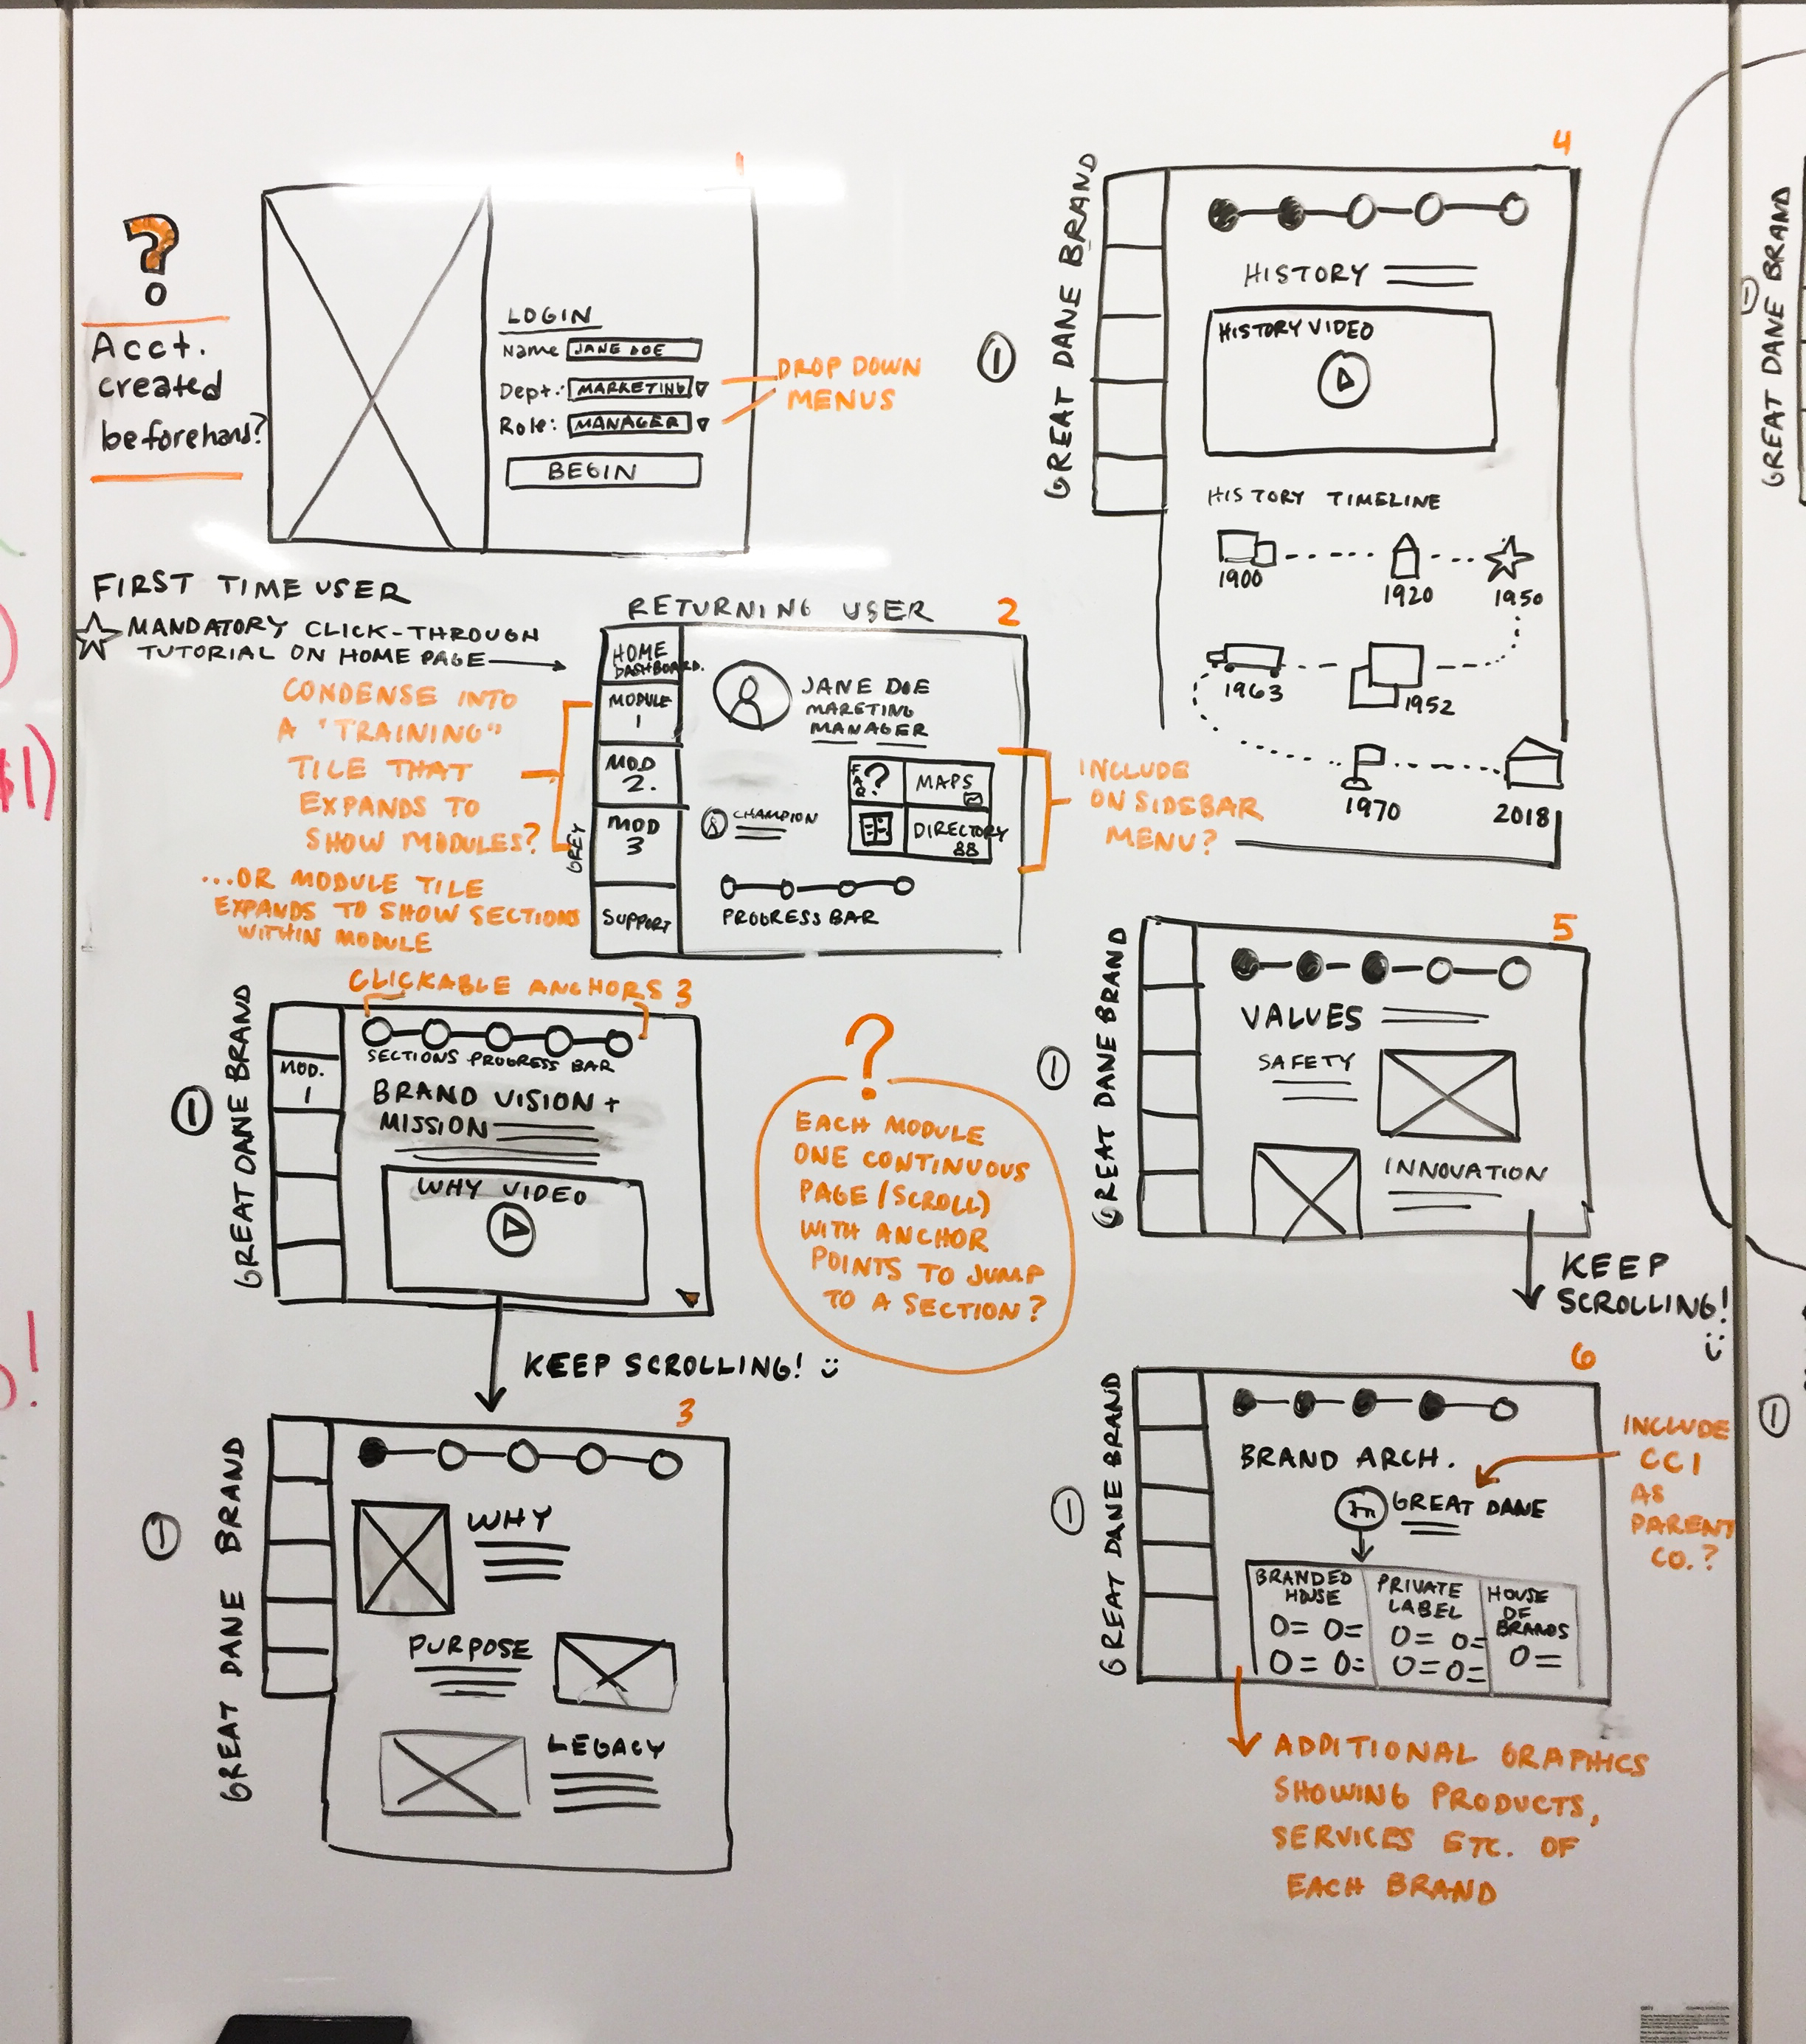 1
?
Acct.
created
beforehand?
LOGIN
Name JANE DOE
Dept.: MARKETING
Role: MANAGER
BEGIN
DROP DOWN
MENUS
FIRST TIME USER
MANDATORY CLICK-THROUGH
TUTORIAL ON HOME PAGE
CONDENSE INTO
A "TRAINING"
TILE THAT
EXPANDS TO
SHOW MODULES?
...OR MODULE TILE
EXPANDS TO SHOW SECTIONS
WITHIN MODULE
RETURNING USER
2
HOME
DASHBOARD.
MODULE
1
MOD
2.
MOD
3
GREY
SUPPORT
JANE DOE
MARETING
MANAGER
CHAMPION
FAQ?
MAPS
DIRECTORY
PROGRESS BAR
INCLUDE
ON SIDEBAR
MENU?
CLICKABLE ANCHORS
3
1
GREAT DANE BRAND
MOD.
1
SECTIONS PROGRESS BAR
BRAND VISION +
MISSION
WHY VIDEO
KEEP SCROLLING!
?
EACH MODULE
ONE CONTINUOUS
PAGE (SCROLL)
WITH ANCHOR
POINTS TO JUMP
TO A SECTION?
3
1
GREAT DANE BRAND
WHY
PURPOSE
LEGACY
4
1
GREAT DANE BRAND
HISTORY
HISTORY VIDEO
HISTORY TIMELINE
1900
1920
1950
1963
1952
1970
2018
5
1
GREAT DANE BRAND
VALUES
SAFETY
INNOVATION
KEEP
SCROLLING!
6
1
GREAT DANE BRAND
BRAND ARCH.
GREAT DANE
BRANDED
HOUSE
PRIVATE
LABEL
HOUSE
OF
BRANDS
INCLUDE
CCI
AS
PARENT
CO.?
ADDITIONAL GRAPHICS
SHOWING PRODUCTS,
SERVICES ETC. OF
EACH BRAND
1
GREAT DANE BRAND
1
$1)
!